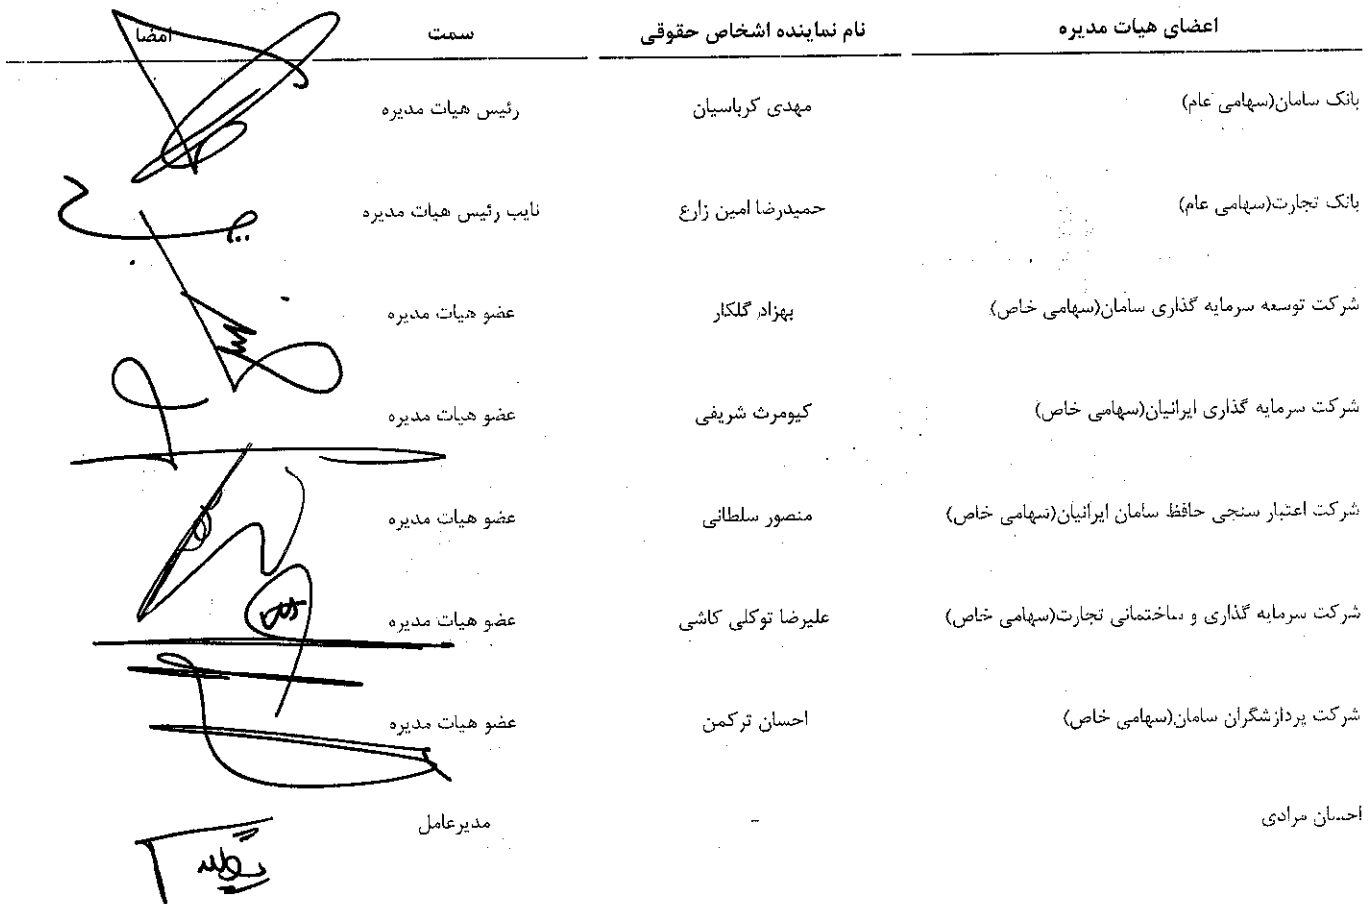 اعضای هیات مدیره نام نماینده اشخاص حقوقی سمت امضا
بانک سامان(سهامی عام) مهدی کرباسیان رئیس هیات مدیره
بانک تجارت(سهامی عام) حمیدرضا امین زارع نایب رئیس هیات مدیره
شرکت توسعه سرمایه گذاری سامان(سهامی خاص) بهزاد گلکار عضو هیات مدیره
شرکت سرمایه گذاری ایرانیان(سهامی خاص) کیومرث شریفی عضو هیات مدیره
شرکت اعتبار سنجی حافظ سامان ایرانیان(سهامی خاص) منصور سلطانی عضو هیات مدیره
شرکت سرمایه گذاری و ساختمانی تجارت(سهامی خاص) علیرضا توکلی کاشی عضو هیات مدیره
شرکت پردازشگران سامان(سهامی خاص) احسان ترکمن عضو هیات مدیره
احسان مرادی - مدیرعامل